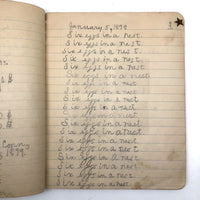 January 5, 1899
Six eggs in a nest.
Six eggs in a nest.
Six eggs in a nest.
Six eggs in a nest.
Six eggs in a nest.
Six eggs in a nest.
Six eggs in a nest.
Six eggs in a nest
Six eggs in a nest
Six eggs in a nest
Six eggs in a nest.
Six eggs in a nest.
Six eggs in a nest.
Six eggs in a nest
Six eggs in a nest
Six eggs in a nest
Six eggs in a nest
Six eggs in a nest
Conny
1899.